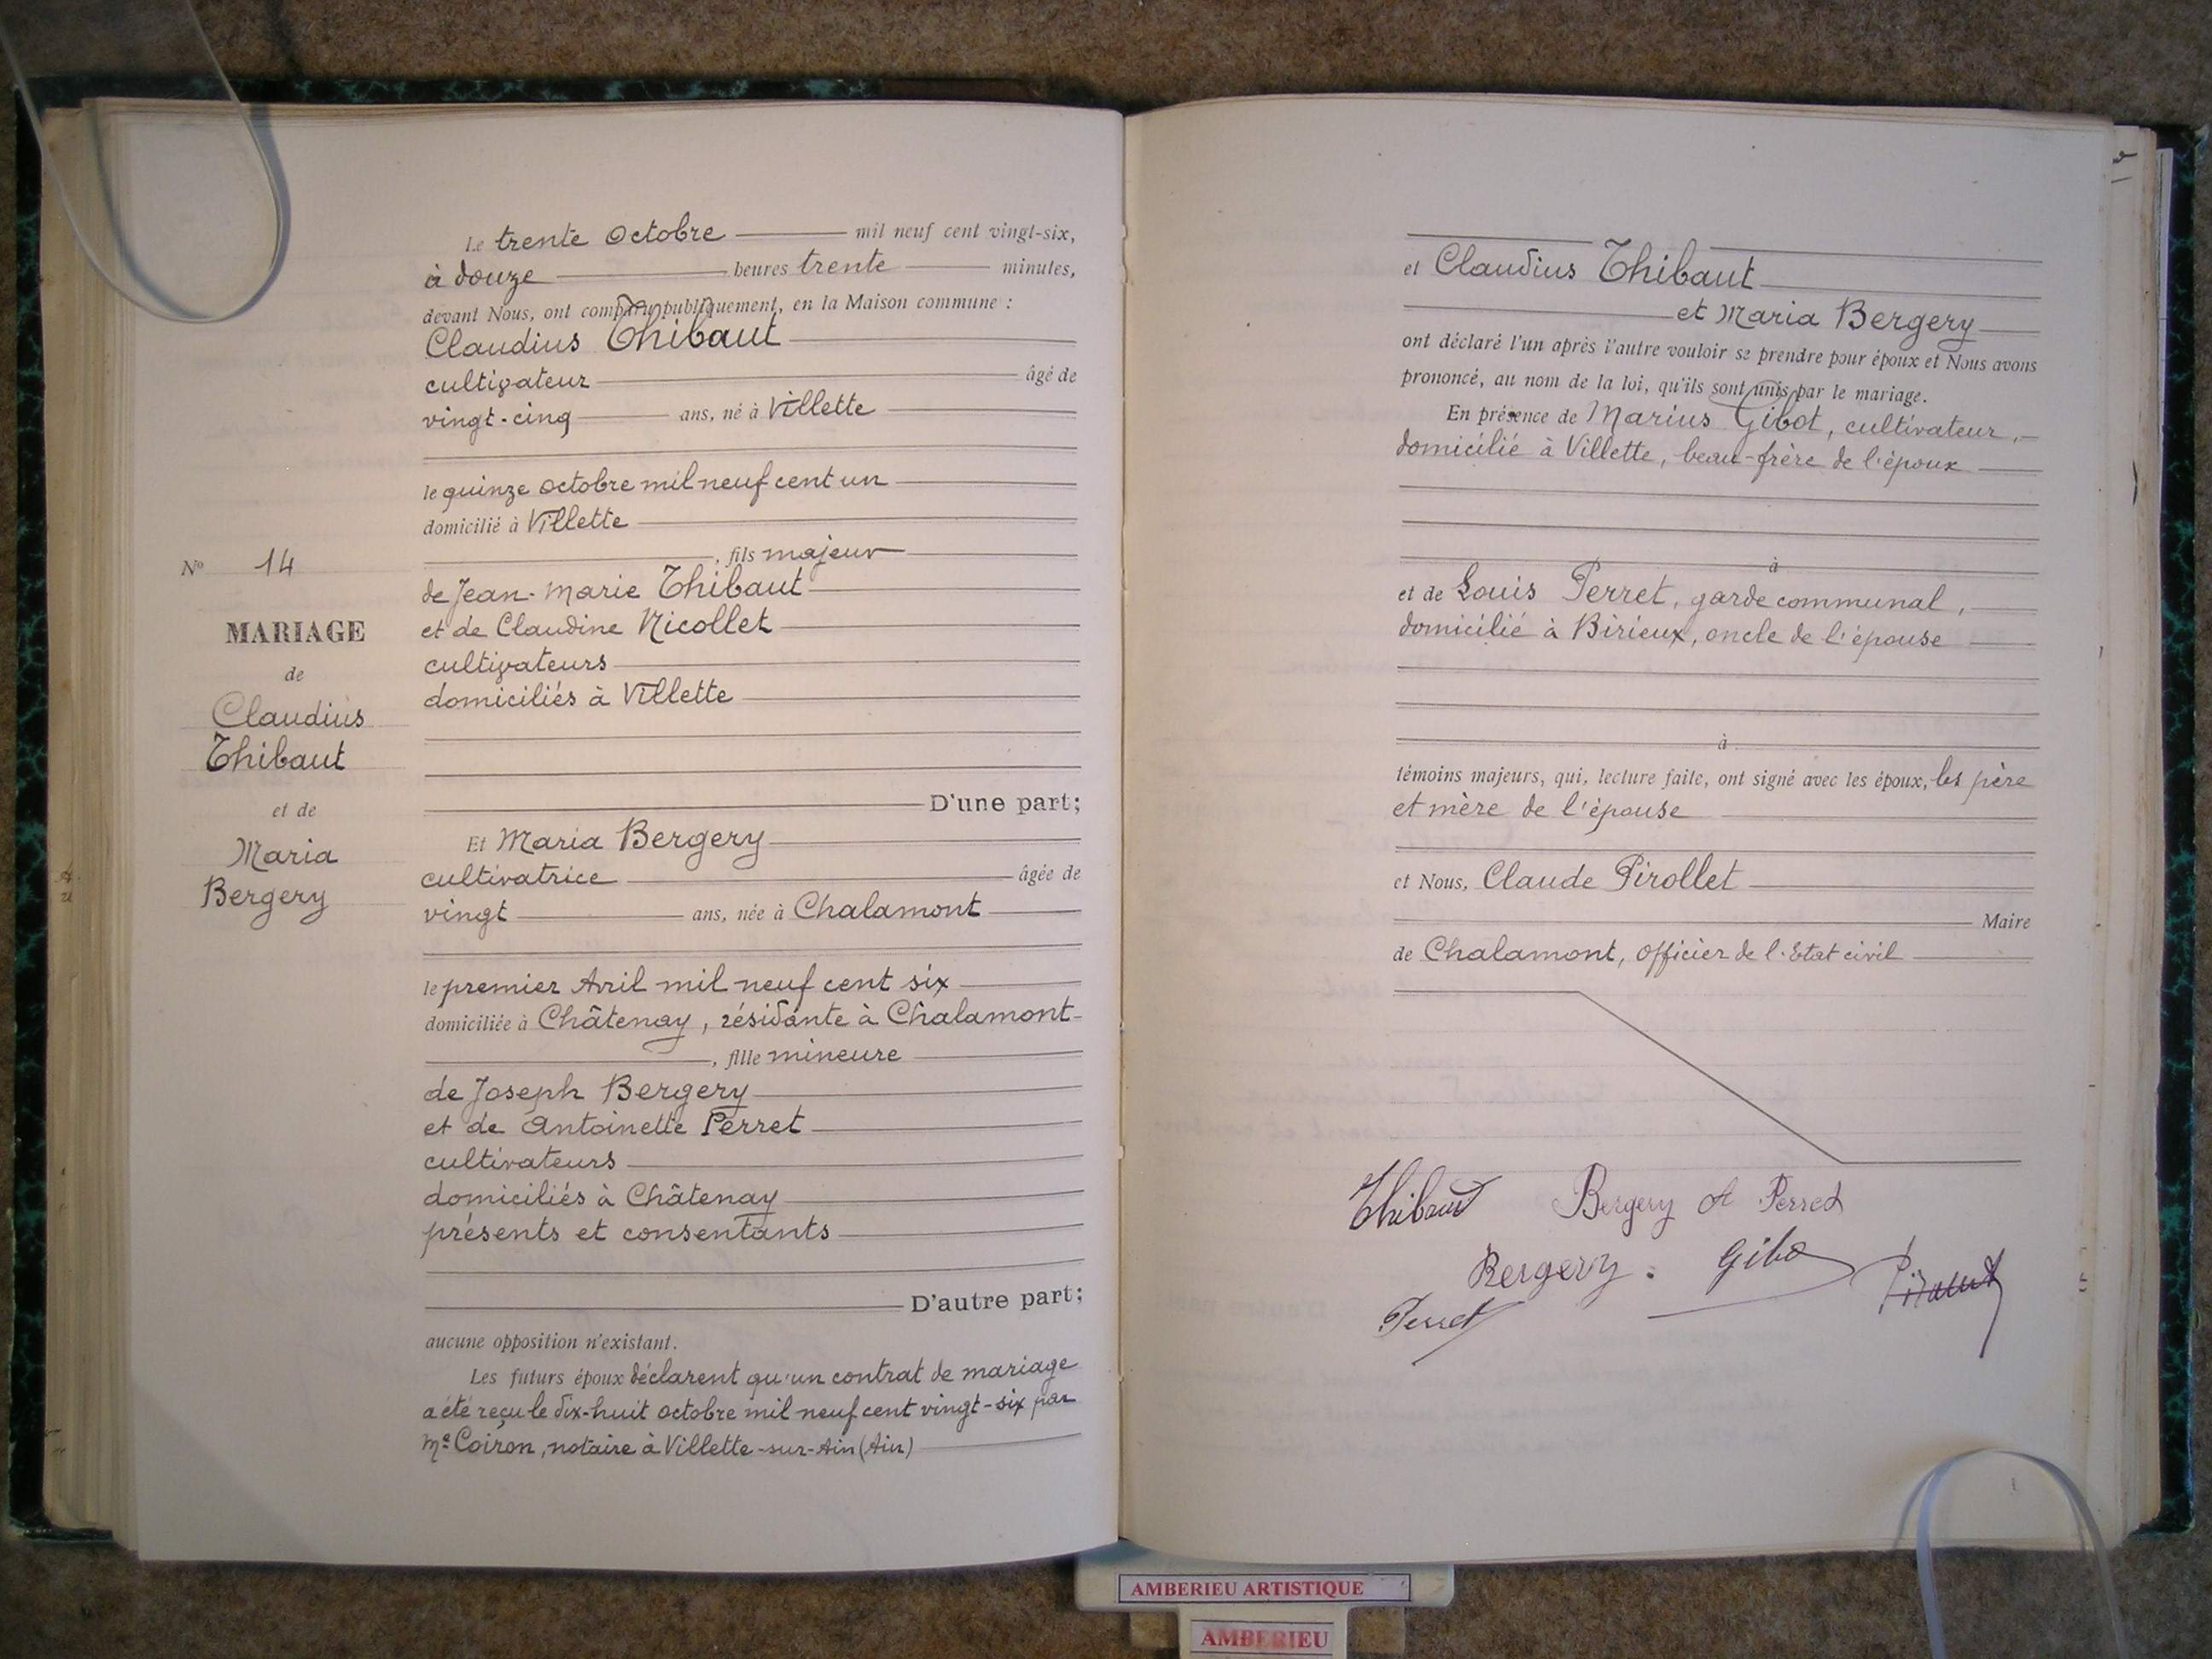 Le trente Octobre mil neuf cent vingt-six,
à douze heures trente minutes,
devant Nous, ont comparu publiquement, en la Maison commune :
Claudius Thibaut
cultivateur âgé de
vingt-cinq ans, né à Villette
le quinze octobre mil neuf cent un
domicilié à Villette
, fils majeur
de Jean-Marie Thibaut
et de Claudine Nicollet
cultivateurs
domiciliés à Villette
D'une part;
Et Maria Bergery
cultivatrice âgée de
vingt ans, née à Chalamont
le premier Avril mil neuf cent six
domiciliée à Châtenay, résidante à Chalamont
, fille mineure
de Joseph Bergery
et de Antoinette Perret
cultivateurs
domiciliés à Châtenay
présents et consentants
D'autre part;
aucune opposition n'existant.
Les futurs époux déclarent qu'un contrat de mariage
a été reçu le dix-huit octobre mil neuf cent vingt-six par
Me Coiron, notaire à Villette-sur-Ain (Ain)
No 14
MARIAGE
de
Claudius
Thibaut
et de
Maria
Bergery
et Claudius Thibaut
et Maria Bergery
ont déclaré l'un après l'autre vouloir se prendre pour époux et Nous avons
prononcé, au nom de la loi, qu'ils sont unis par le mariage.
En présence de Marius Gibot, cultivateur,
domicilié à Villette, beau-frère de l'époux
à
et de Louis Perret, garde communal,
domicilié à Birieux, oncle de l'épouse
à
témoins majeurs, qui, lecture faite, ont signé avec les époux, les père
et mère de l'épouse
et Nous, Claude Pirollet
Maire
de Chalamont, officier de l'Etat civil
Thibaut Bergery A Perret
Bergery. Gibo
Perret
AMBERIEU ARTISTIQUE
AMBERIEU